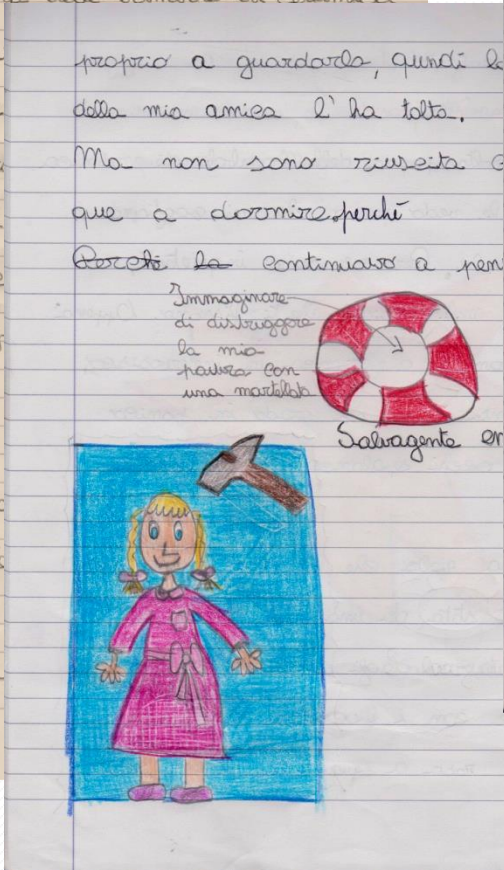 proprio a guardarla, qundi la
della mia amica l'ha tolta.
Ma non sono riuscita
que a dormire perché
Perché la continuavo a pen
Immaginare
di distruggere
la mia
paura con
una martellata
Salvagente em